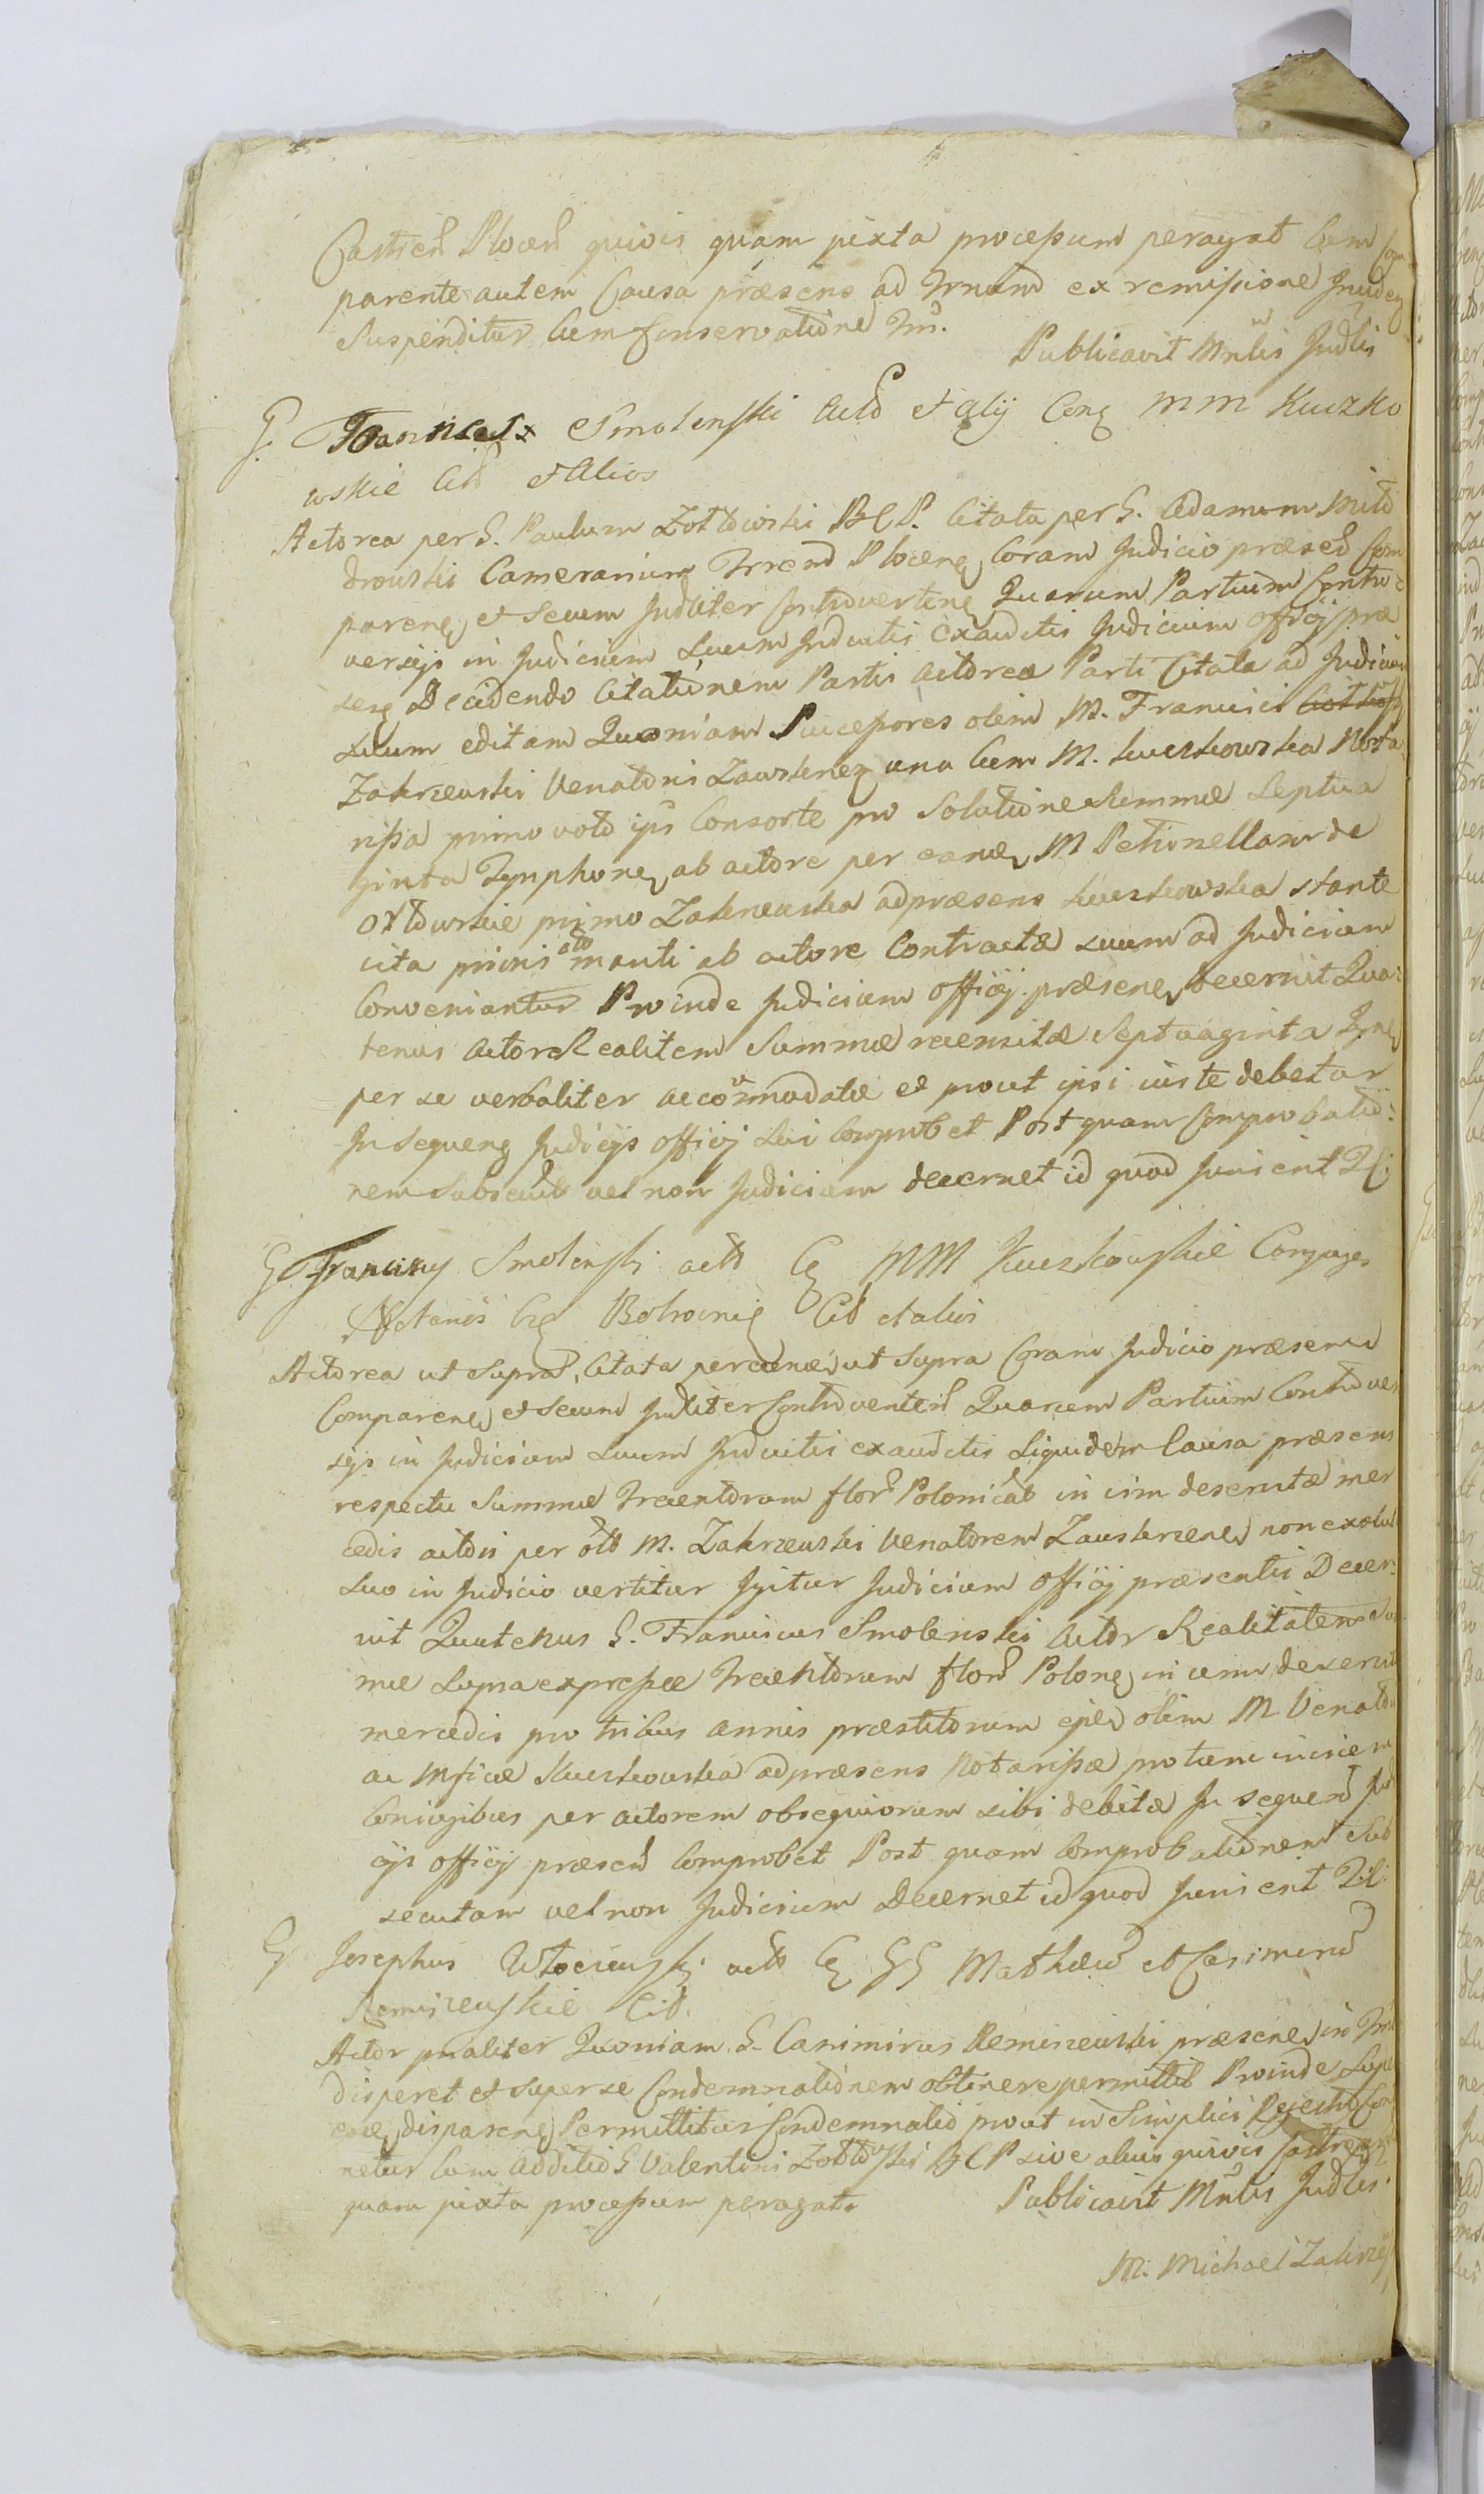 Castren Plocen quivis quam juxta processum peragat Cum Com
parente autem Causa præsens ad Trnum ex remissione
Suspenditur Cum Conservatione Trni.
Publicavit Mnlis Judlis
G. Smolenski Actor et alij Cong MM Kuczko
wskie Citt et Alios
Actorea per G. Paulum Zołtowski BCP. Citata per G. Adamum
drowski Camerarium Terrend Ploceng Coram Judicio præsed Com
pareng et Secum Judliter Controverteng Quarum Partium Contro:
versijs in Judicium Suum Inductis Exauditis Judicium officij præ
seng Decidendo Citationem Partis Actoreæ Parti Citatæ ad Judicium
Suum editam Quoniam Successores olim M. Francisci
Zakrzewski Venatoris Zawskrzeng una Cum M. Kuczkowska Nota
rissa primo voto ips Consorte pro Solutione Summæ Septua
ginta Tynphong ab actore per eand M Petronellam de
primo Zakrzewska adpræsens Kuczkowska stante
vita prioris mariti ab actore Contractæ suum ad Judicium
Conveniantur Proinde Judicium officij præseng decernit Qua:
tenus Actor Realitem Summæ recensitæ Septuaginta Tyng
per se verbaliter accommodatæ et prout ipsi iuste debetur
In sequeng Judicijs officij Sui Comprobet Post quam Comprobatio:
nem Subsecut vel non Judicium decernet id quod Juris erit
G. Franciscus Smolenski actor Cg MM Kuczkowskie Conjuges
Notarios Citt et alios
Actorea ut Supra, Citata per eund ut Supra Coram Judicio præsenti
Compareng et Secum Judliter Controverten Quarum Partium Controver
sijs in Judicium Suum Inductis exauditis Siquidem Causa præsens
respectu Summæ Trecentorum flor Polonical in vim deservitæ mer
cedis actoris per olim M. Zakrzewski Venatorem Zawskrzeng non exolut
Suo in Judicio vertitur Igitur Judicium officij præsentis Decer:
nit Quatenus G. Franciscus Smolenski Actor Realitatem Sum
mæ Supra expressæ Trecentorum flor Polong in vim deservit
mercedis pro tribus annis præstitorum olim M Venatori
ac Mficæ Kuczkowska adpræsens Notarissæ pro tunc invicem
Coniugibus per actorem obsequiorum sibi debitæ In sequen Judi
cijs officij præsen Comprobet Post quam Comprobationem Sub
secutam vel non Judicium Decernet id quod Juris erit
G Josephus actor Cg GG Mathæum et Casimirum
Reminewskie Citt.
Actor pnaliter Quoniam G. Casimirus Reminewski præseng in Trno
disparet et Super se Condemnationem obtinere permittit Proinde Super
eod dispareng Permittitur Condemnatio prout in Simplici
netur Cum Additio G Valentini Zołtowski BCP sive alius quivis
quam juxta processum peragat.
Publicavit Mnlis Judlis.
M. Michael